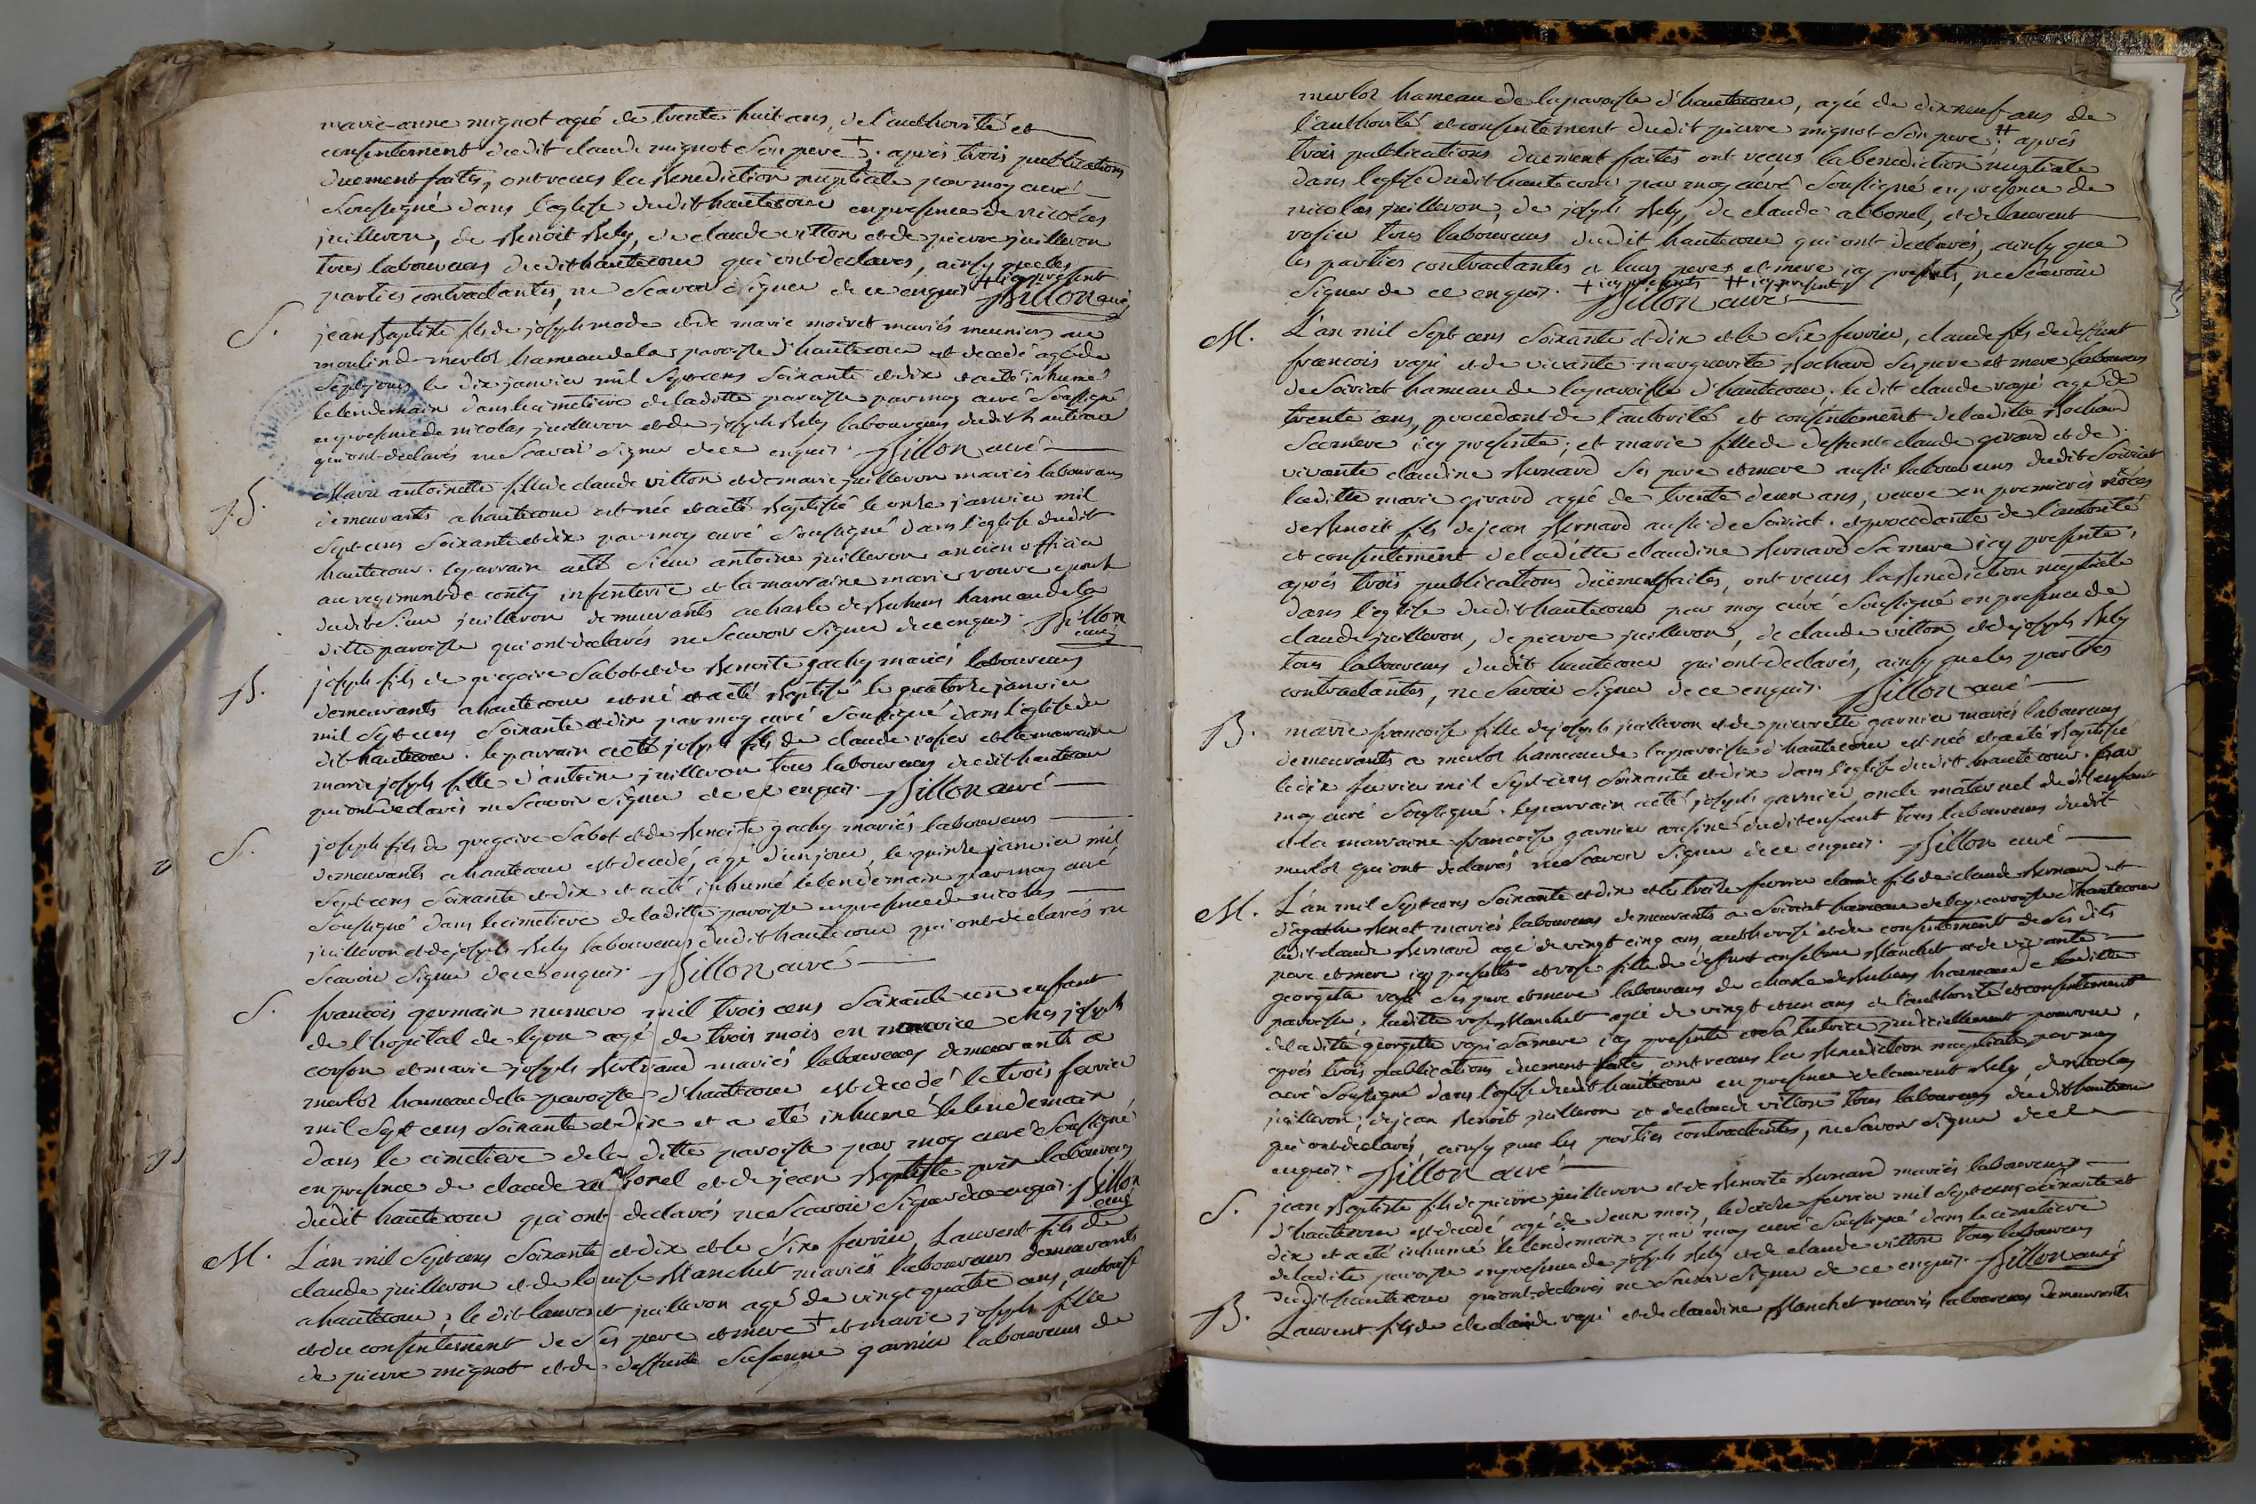 marie-anne mignot agée de trente huit ans, de l'authorité et
consentement dudit claude mignot son pere +; après trois publications
duement faites, ont reçus la Benediction nuptiale par moy curé
Soussigné dans l'eglise dudit hautecour en presence de nicolas
juilleron, de Benoit Rely, de claude villon et de pierre juilleron
tous laboureurs dudit hautecour qui ont declarés, ainsy que les
parties contractantes, ne Scavoir signer de ce enquis. + icy present Billon curé
S. jean Baptiste fils de joseph mode et de marie moiret mariés meuniers au
moulin de merloz hameau de la paroisse d'hautecour est decedé agé de
Sept jours le dix janvier mil Sept cens Soixante et dix et a eté inhumé
le lendemain dans le cimetiere de laditte paroisse par moy curé Soussigné
en presence de nicolas juilleron et de joseph Rely laboureurs dudit hautecour
qui ont declarés ne Scavoir signer de ce enquis. Billon curé
B. Marie antoinette fille de claude villon et de marie juilleron mariés laboureurs
demeurants a hautecour est née et a eté Baptisée le onze janvier mil
Sept cens Soixante et dix par moy curé Soussigné dans l'eglise dudit
hautecour. le parrain a eté Sieur antoine juilleron ancien officier
au regiment de conty infenterie et la marraine marie vouve epouse
dudit Sieur juilleron demeurants a charle de Buhens hameau de la
ditte paroisse qui ont declarés ne Scavoir signer de ce enquis. Billon
curé
B. joseph fils de gregoire Sabot et de Benoite gachy mariés laboureurs
demeurants a hautecour est né et a eté Baptisé le quatorze janvier
mil Sept cens Soixante et dix par moy curé Soussigné dans l'eglise du
dit hautecour. le parrain a eté joseph fils de claude vosier et la marraine
marie joseph fille d'antoine juilleron tous laboureurs dudit hautecour
qui ont declarés ne Scavoir signer de ce enquis. Billon curé
S. joseph fils de gregoire Sabot et de Benoite gachy mariés laboureurs
demeurants a hautecour est decedé, agé d'un jour, le quinze janvier mil
Sept cens Soixante et dix et a eté inhumé le lendemain par moy curé
Soussigné dans le cimetiere de laditte paroisse en presence de nicolas
juilleron et de joseph Rely laboureurs dudit hautecour qui ont declarés ne
Scavoir signer de ce enquis. Billon curé
S. francois germain numero mil trois cens Soixante un enfant
de l'hopital de lyon agé de trois mois en nourrice chés joseph
corson et marie joseph Bertrand mariés laboureurs demeurants a
merloz hameau de la paroisse d'hautecour est decedé le trois fevrier
mil Sept cens Soixante et dix et a eté inhumé le lendemain
dans le cimetiere de la ditte paroisse par moy curé Soussigné
en presence de claude albonel et de jean Baptiste puis laboureurs
dudit hautecour qui ont declarés ne Scavoir signer de ce enquis. Billon
curé
M. L'an mil Sept cens Soixante et dix et le Six fevrier, Laurent fils de
claude juilleron et de louise Blanchet mariés laboureurs demeurants
a hautecour; le dit laurent juilleron agé de vingt quatre ans, autorisé
et du consentement de Ses pere et mere + et marie joseph fille
de pierre mignot et de deffunte Susanne garnier laboureurs de
merloz hameau de la paroisse d'hautecour, agée de dix neuf ans de
l'authorité et consentement dudit pierre mignot Son pere; ++ après
trois publications duement faites ont reçus la benediction nuptiale
dans l'eglise dudit hautecour par moy curé Soussigné en presence de
nicolas juilleron, de joseph Rely, de claude albonel, et de laurent
vosier tous laboureurs dudit hautecour qui ont declarés, ainsy que
les parties contractantes et leurs peres et mere icy presents, ne Scavoir
Signer de ce enquis. + icy presents ++ icy present Billon curé
M. L'an mil Sept cens Soixante et dix et le Six fevrier, claude fils de deffunt
francois vapi et de vivante marguerite Bochard Ses pere et mere laboureurs
de Soiriat hameau de la paroisse d'hautecour, le dit claude vapi agé de
trente ans, procedant de l'autorité et consentement de laditte Bochard
Sa mere icy presente; et marie fille de deffunt claude girard et de
vivante claudine Bernard Ses pere et mere aussi laboureurs dudit Soiriat
laditte marie girard agée de trente deux ans, veuve en premieres nôces
de Benoit fils de jean Bernard aussi de Soiriat. et procedante de l'autorité
et consentement de laditte claudine Bernard Sa mere icy presente;
après trois publications duëment faites, ont reçus la Benediction nuptiale
dans l'eglise dudit hautecour par moy curé Soussigné en presence de
claude juilleron, de pierre juilleron, de claude villon et de joseph Rely
tous laboureurs dudit hautecour qui ont declarés, ainsy que les parties
contractantes, ne Savoir Signer de ce enquis. Billon curé
B. marie francoise fille de joseph juilleron et de pierrette garnier mariés laboureurs
demeurants a merloz hameau de la paroisse d'hautecour est née et a eté Baptisée
le dix fevrier mil Sept cens Soixante et dix dans l'eglise dudit hautecour. par
moy curé Soussigné. le parrain a eté joseph garnier oncle maternel dudit enfant
et la marraine francoise garnier cousine dudit enfant tous laboureurs dudit
merloz qui ont declarés ne Scavoir Signer de ce enquis. Billon curé
M. L'an mil Sept cens Soixante et dix et le treize fevrier claude fils de claude Bernard et
d'agathe Benet mariés laboureurs demeurants a Soiriat hameau de la paroisse d'hautecour
ledit claude Bernard agé de vingt cinq ans, authorisé et du consentement de Ses dits
pere et mere icy presents et rose fille de deffunt anselme Blanchet et de vivante
georgette vapi Ses pere et mere laboureurs de charle de Buhens hameau de laditte
paroisse, laditte rose Blanchet agée de vingt et un ans de l'authorité et consentement
de laditte georgette vapi Sa mere icy presente et Sa tutrice judiciellement pourvue,
après trois publications duement faites ont reçus la Benediction nuptiale par moy
curé Soussigné dans l'eglise dudit hautecour en presence de laurent Rely, de nicolas
juilleron, de jean Benoit juilleron et de claude villon tous laboureurs dudit hautecour
qui ont declarés, ainsy que les parties contractantes, ne Savoir Signer de ce
enquis. Billon curé
S. jean Baptiste fils de pierre juilleron et de Benoite Bernard mariés laboureurs
d'hautecour est decedé agé de deux mois, le treize fevrier mil Sept cens Soixante et
dix et a eté inhumé le lendemain par moy curé Soussigné dans le cimetiere
de ladite paroisse en presence de joseph Rely et de claude villon tous laboureurs
dudit hautecour qui ont declarés ne Savoir Signer de ce enquis. Billon curé
B. Laurent fils de claude vapi et de claudine Blanchet mariés laboureurs demeurants